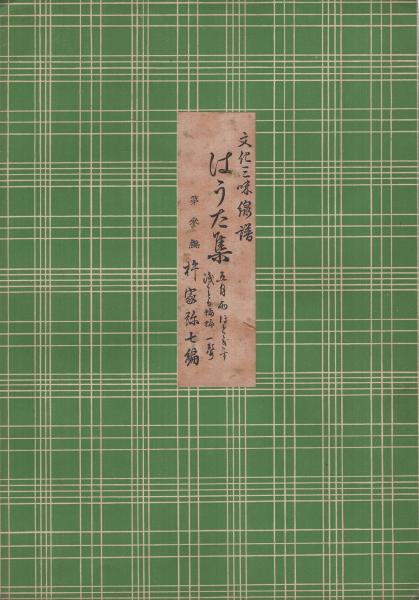 文化三味線譜
はうた集
第参編
五月雨 ほととぎす
浅くとも 梅にも 一声
杵家弥七編